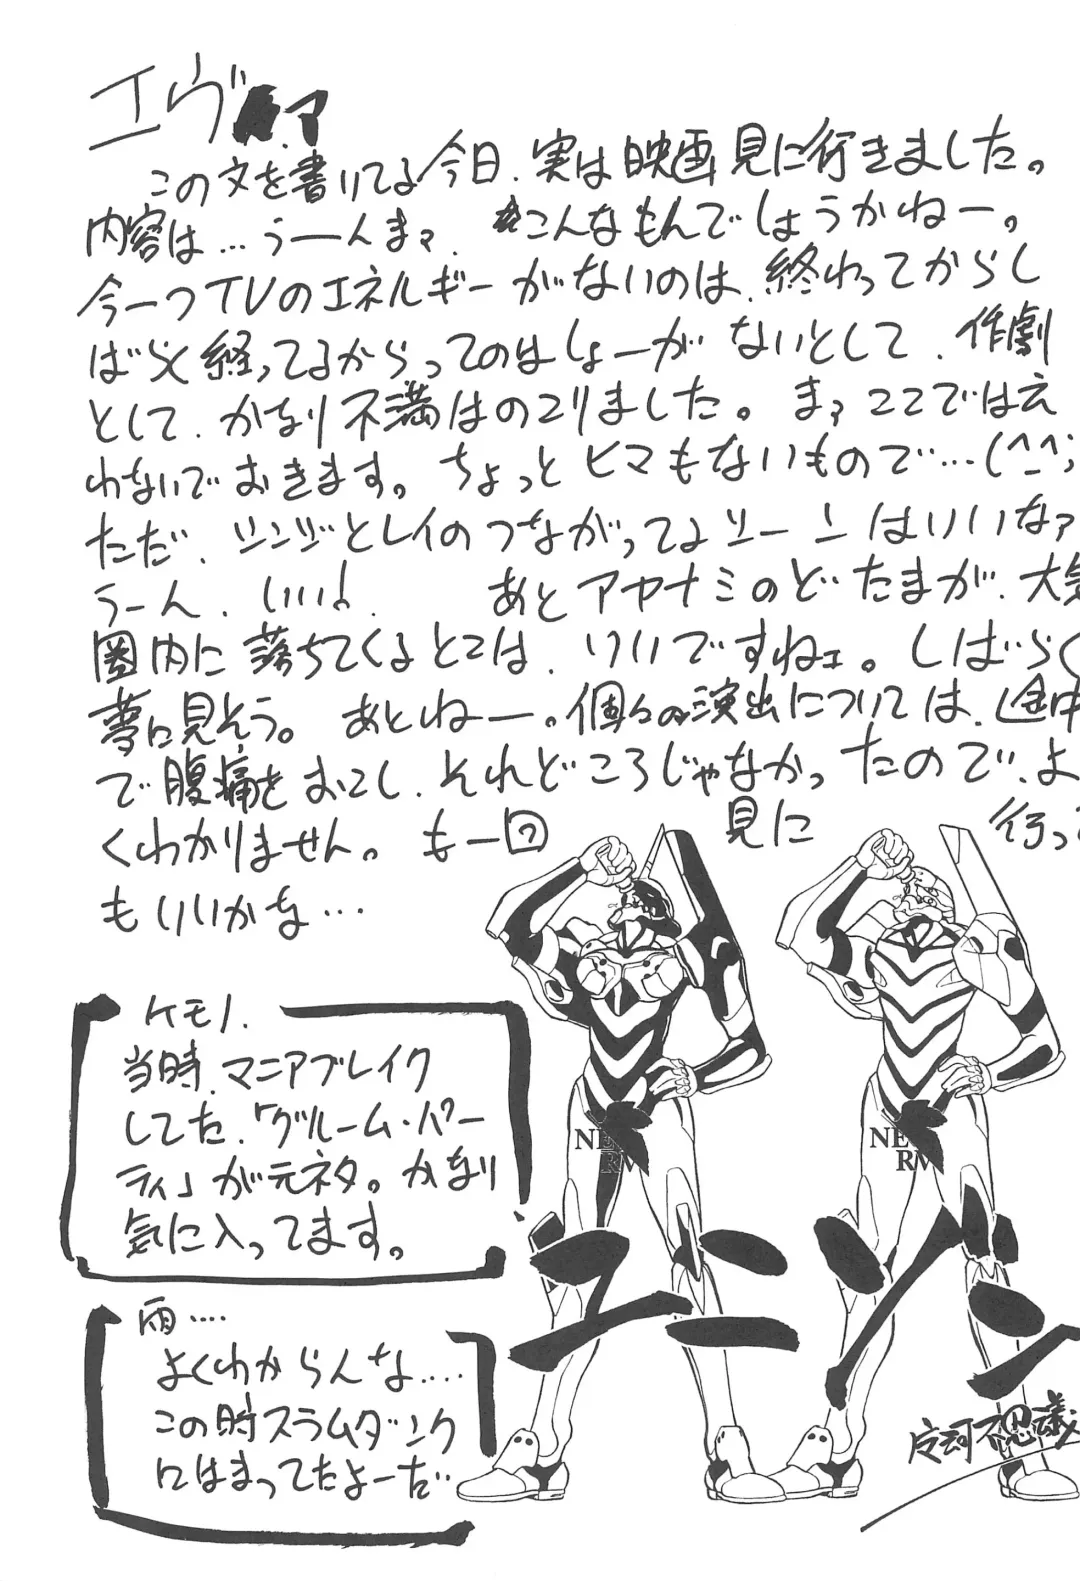 エヴァ
この文を書いてる今日、実は映画見に行きました。
内容は…うーんまァ、こんなもんでしょうかねー。
今一つTVのエネルギーがないのは、終わってからし
ばらく経ってるからってのはしょーがないとして、作劇
として、かなり不満はのこりました。まァここでは言
わないでおきます。ちょっとヒマもないもので…(^^;
ただ、シンジとレイのつながってるシーンはいいなァ
うーん、いいよ、 あとアヤナミのどたまが、大気
圏内に落ちてくるとこは、いいですねェ。しばらく
夢に見そう。あとねー。個々の演出については、途中
で腹痛をおこし、それどころじゃなかったので、よ
くわかりません。も一回 見に 行って
もいいかな…
ケモノ、
当時、マニアブレイク
してた、「グルーム・パー
ティ」が元ネタ。かなり
気に入ってます。
雨‥‥
よくわからんな‥‥
この時スラムダンク
にはまってたよーだ
NE
RV
NE
RV
エンン
不思議